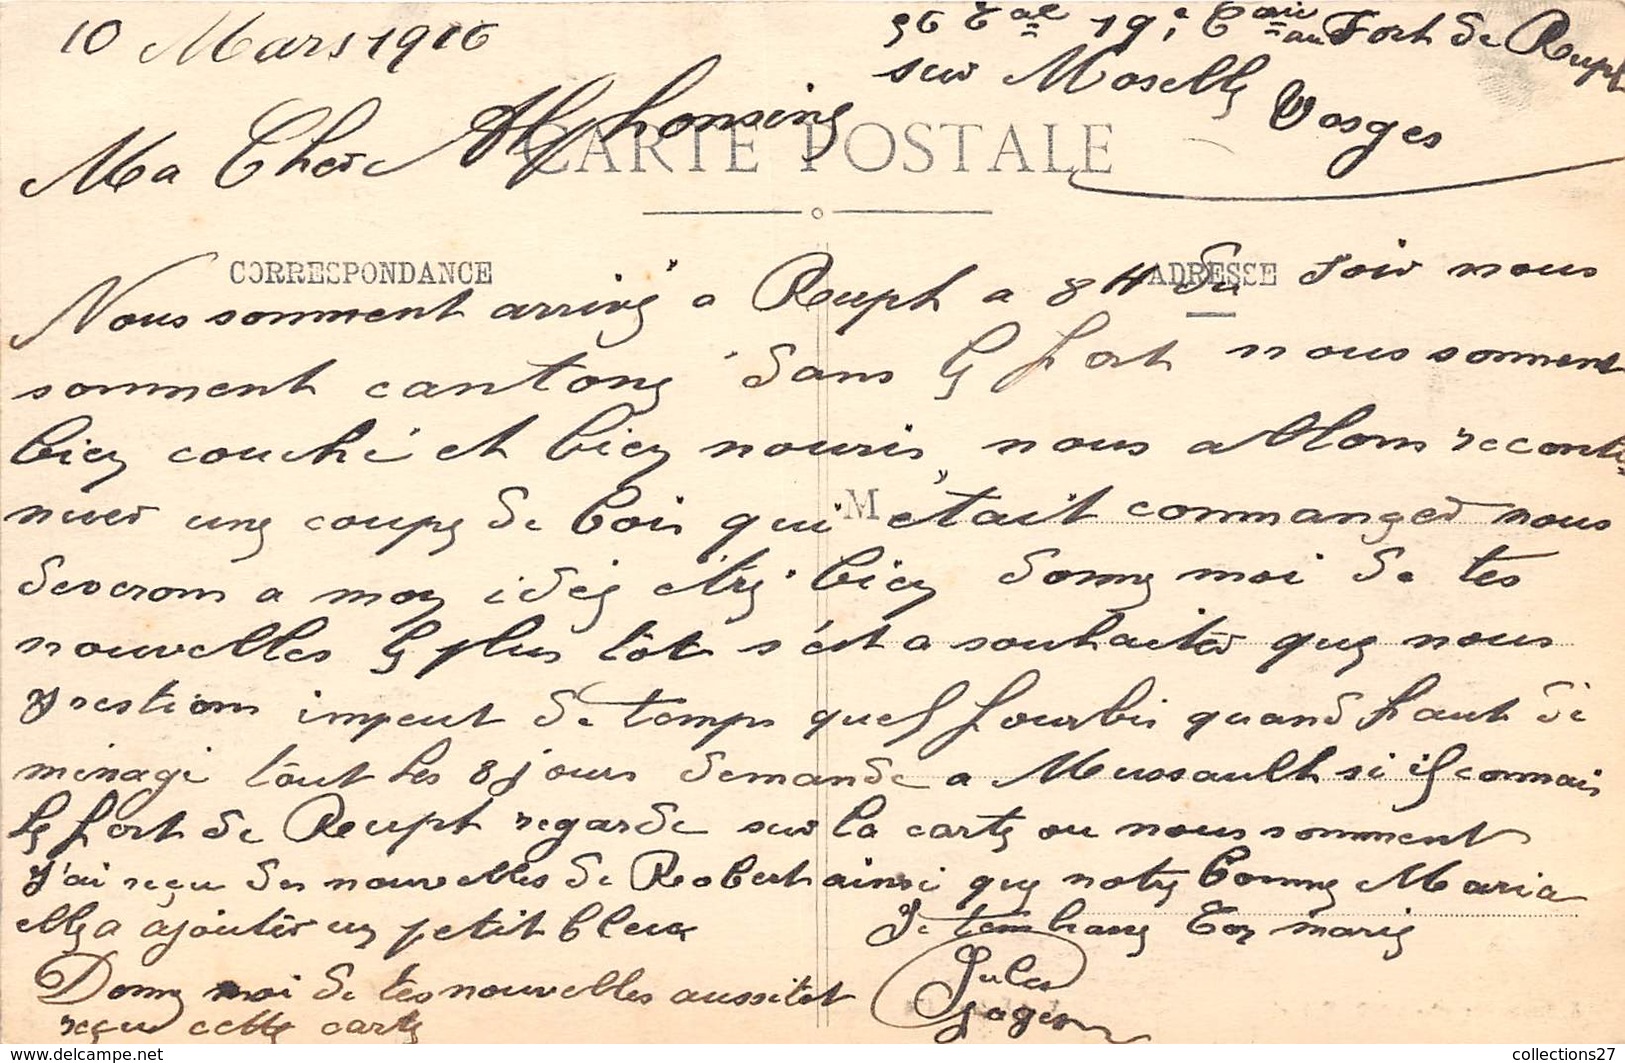 10 Mars 1916
36 Tal 19e Cnie au Fort de Rupt
sur Moselle
Vosges
Ma Cher Alphonsine
CARTE POSTALE
CORRESPONDANCE
ADRESSE
Nous somment arrivé a Rupt a 8 H du soir nous
somment cantoné dans le fort nous somment
bien couché et bien nouris nous allons reconti-
nuer une coupe de bois qui était commanger nous
M
deverons a mon idée être bien donne moi de tes
nouvelles le plus tôt s'est a souhaiter que nous
y restions impeut de temps quel fourbis quand faut dé
ménagé tout les 8 jours demande a Mussault si il connais
le fort de Rupt regarde sur la carte ou nous somment
J'ai reçu des nouvelles de Robert ainsi que notre bonne Maria
elle a ajouter un petit bleux
Je tembrasse Ton marie
Jules
Donne moi de tes nouvelles aussitot
reçu cette carte
collections27